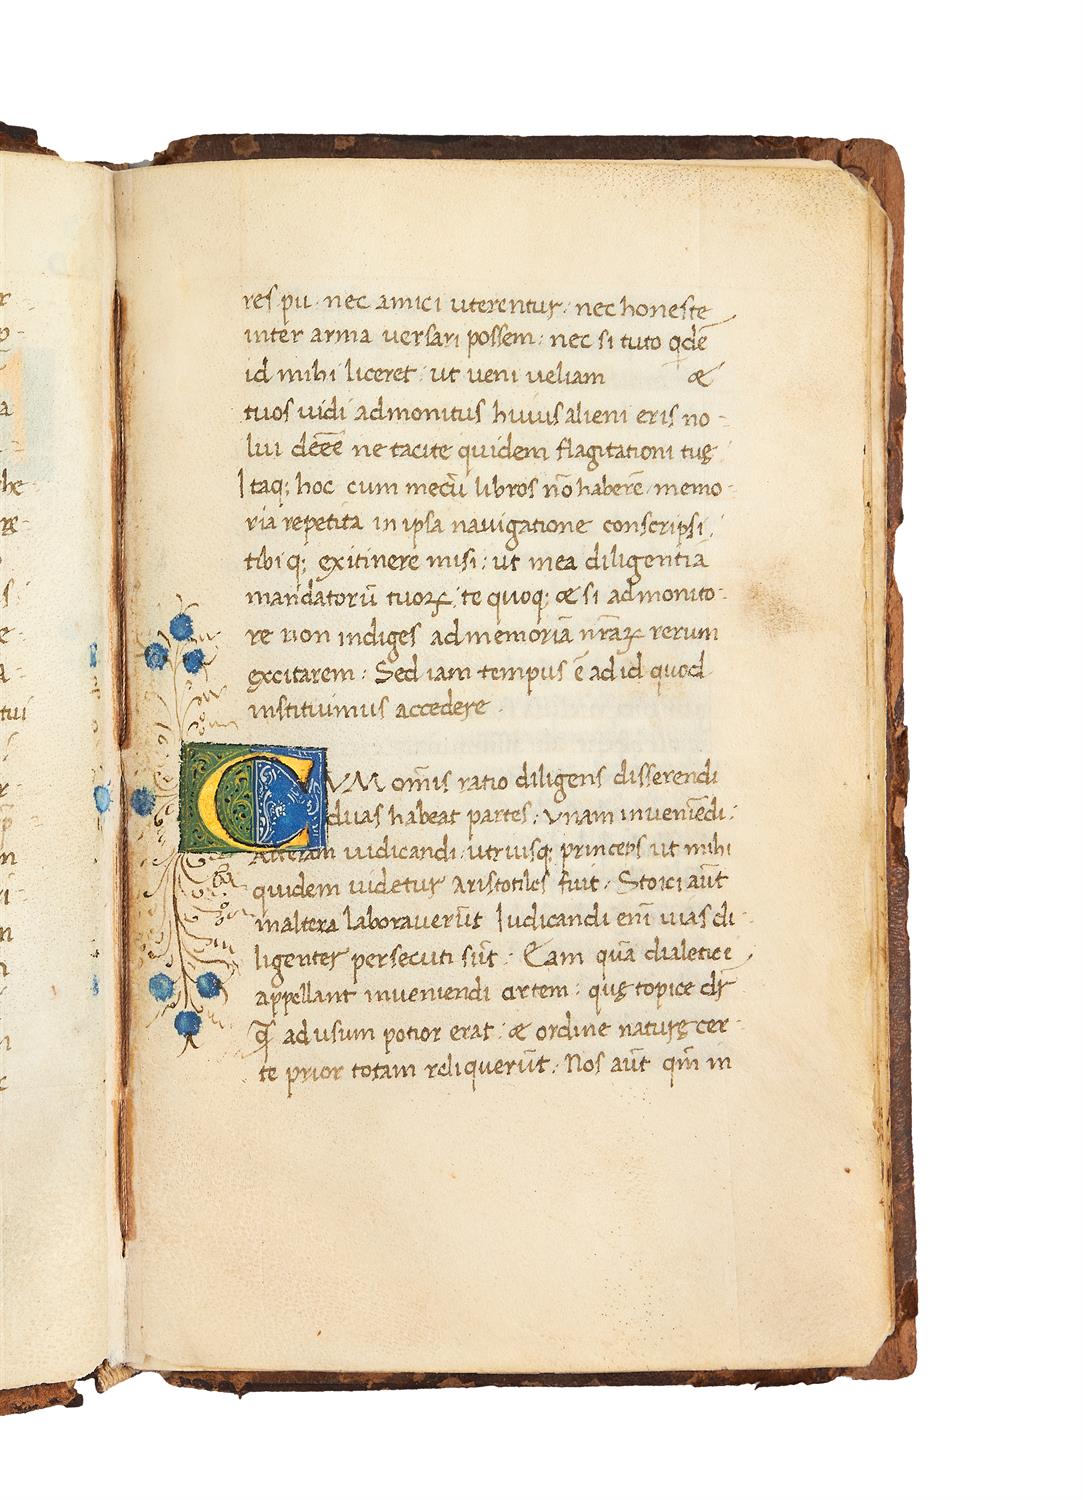 res pu. nec amici uterentur. nec honeste
inter arma uersari possem: nec si tuto qdē
id mihi liceret: ut ueni ueliam æ
tuos uidi admonitus huius alieni eris no-
lui deēē ne tacite quidem flagitationi tuę
Itaq; hoc cum mecū libros nō haberē memo-
ria repetita in ipsa nauigatione conscripsi.
tibi q; ex itinere misi: ut mea diligentiā
mandatorū tuoꝝ. te quoq; æ si admonito-
re non indiges ad memoriā nr̄aꝝ rerum
excitarem: Sed iam tempus ē ad id quod
instituimus accedere.
CVM omīs ratio diligens disserendi
duas habeat partes. vnam inueniēdi.
Alteram iudicandi. utriusq; princeps ut mihi
quidem uidetur Aristotiles fuit. Stoici aūt
in altera laborauerūt Iudicandi enī uias di-
ligenter persecuti sūt. Eam quā dialetice
appellant inueniendi artem: quę topice dr̄
Q̄ ad usum potior erat. æ ordine naturę cer-
te prior totam reliquerūt. Nos aūt qm̄ in
r
a
he-
rę-
s.
e-
a-
tui
r-
p̄
n
ri-
n